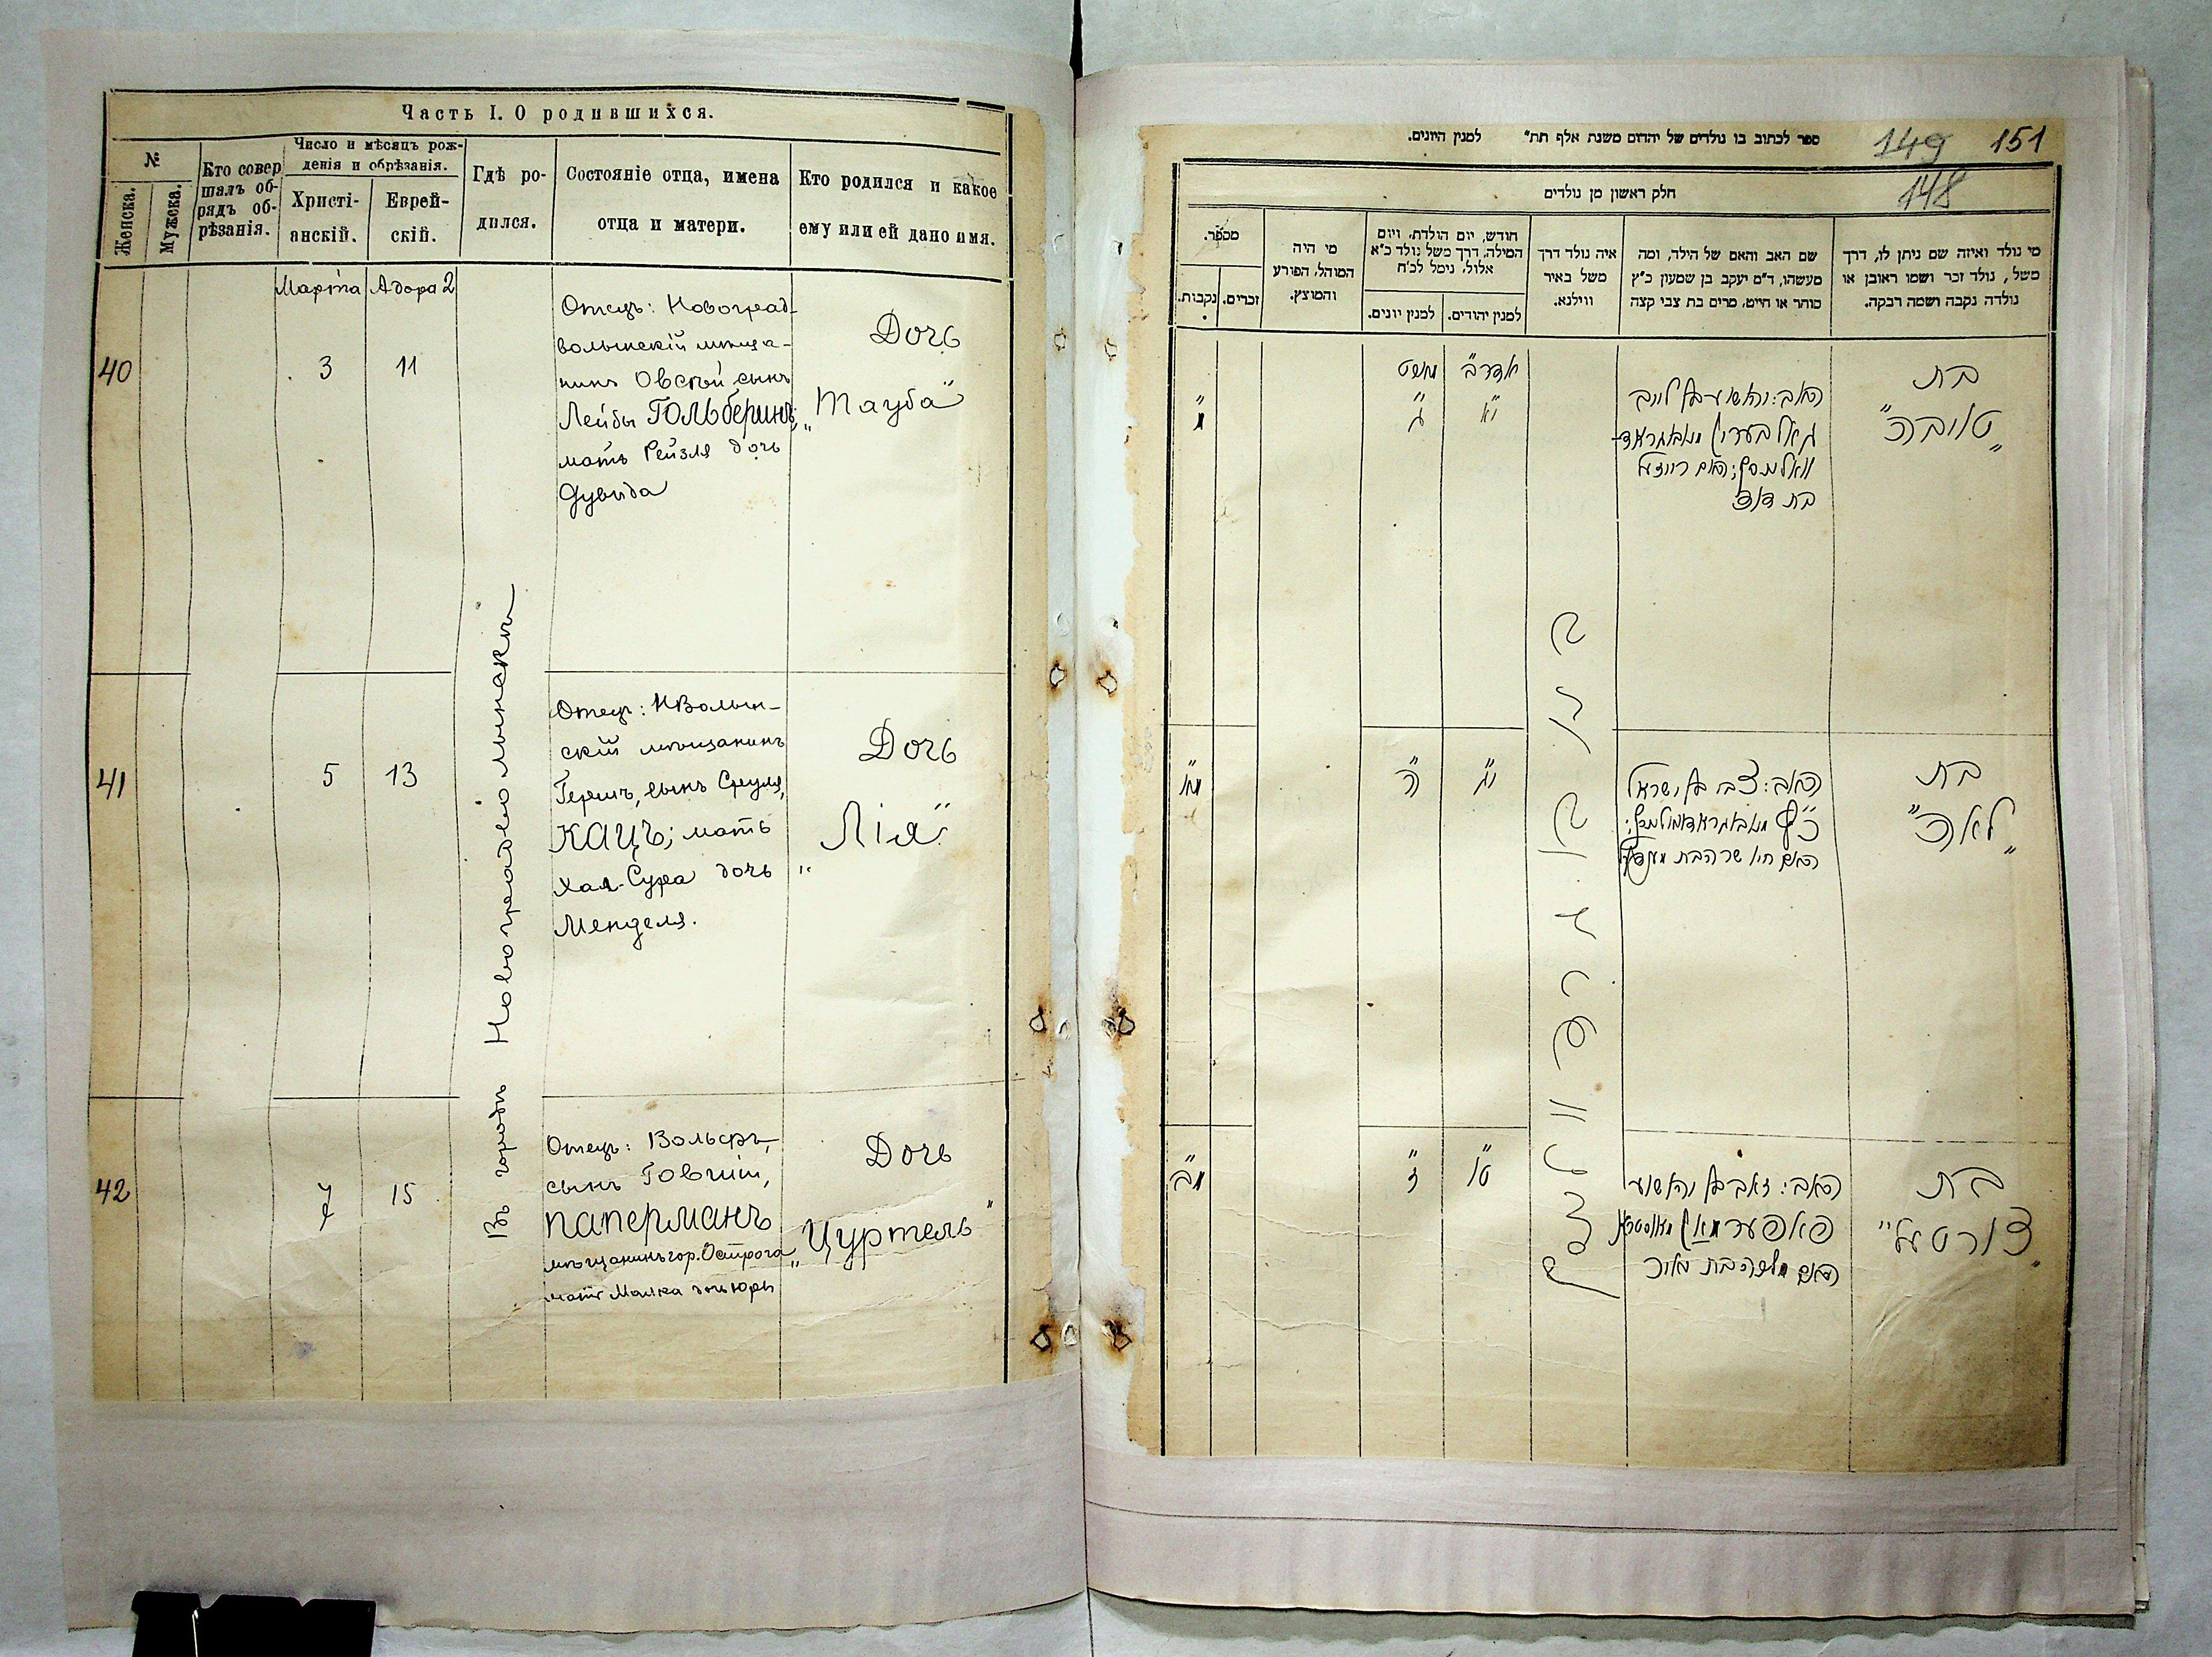 Часть I. О родившихся.
№
Женска.
Мужска.
Кто совер
шалъ об-
рядъ об-
рѣзанія.
Число и мѣсяцъ рож-
денія и обрѣзанія.
Христі-
анскій.
Еврей-
скій.
Гдѣ ро-
дился.
Состояніе отца, имена
отца и матери.
Кто родился и какое
ему или ей дано имя.
Марта Адора 2
40
3
11
Отецъ: Новоград-
волынскій мѣща-
нинъ Овсѣй сынъ
Лейбы Гольберинъ;
мать Рейзля дочь
Дувида
Дочь
„Тауба"
Въ городѣ Новоградволынскѣ
41
5
13
Отецъ: НВолын-
скій мѣщанинъ
Гершъ, сынъ Сруля,
Кацъ; мать
Хая-Сура дочь
Менделя.
Дочь
„Лія"
42
7
15
Отецъ: Вольфъ,
сынъ Говшіи,
Паперманъ
мѣщанинъ гор. Острога
мать Малка дочь Юры
Дочь
„Цуртель"
ספר לכתוב בו נולדים של יהודים משנת אלף תת״ למנין היונים.
149 151
148
חלק ראשון מן נולדים
מי נולד ואיזה שם ניתן לו, דרך
משל, נולד זכר ושמו ראובן או
נולדה נקבה ושמה רבקה.
שם האב והאם של הילד, ומה
מעשהו, ד״מ יעקב בן שמעון כ״ץ
סוחר או חייט, מרים בת צבי קצה
איה נולד דרך
משל באיר
ווילנא.
חודש, יום הולדת, ויום
המילה, דרך משל נולד כ״א
אלול, נימל לכ״ח
למנין יהודים.
למנין יונים.
מי היה
המוהל, הפורע
והמוצץ.
מספר.
זכרים.
נקבות.
בת
„טובה"
האב: יהושע בן לייב
גאלבערין מנאוואגראד־
וואלינסק; האם רייזעל
בת דוד
אדר ב
י״א
מארט
ג״
מ״
בת
„לאה"
האב: צבי בן ישראל
כ״ץ
האם חיה שרה בת מענדל
י״ג
ה״
מ״א
בת
„צורטעל"
האב: זאב בן יהושע
פאפערמאן מאוסטרא
האם מלכה בת
ט״ו
ז״
מ״ב